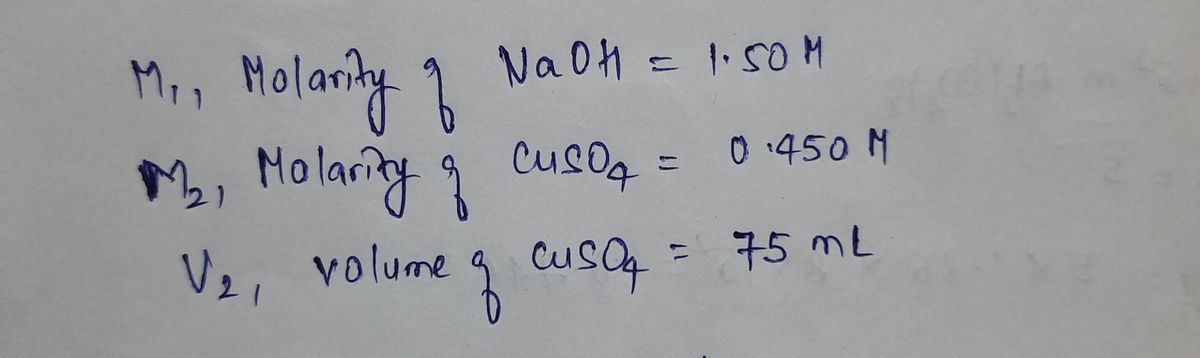 M₁, Molarity of NaOH = 1.50 M
M₂, Molarity of CuSO₄ = 0.450 M
V₂, volume of CuSO₄ = 75 mL